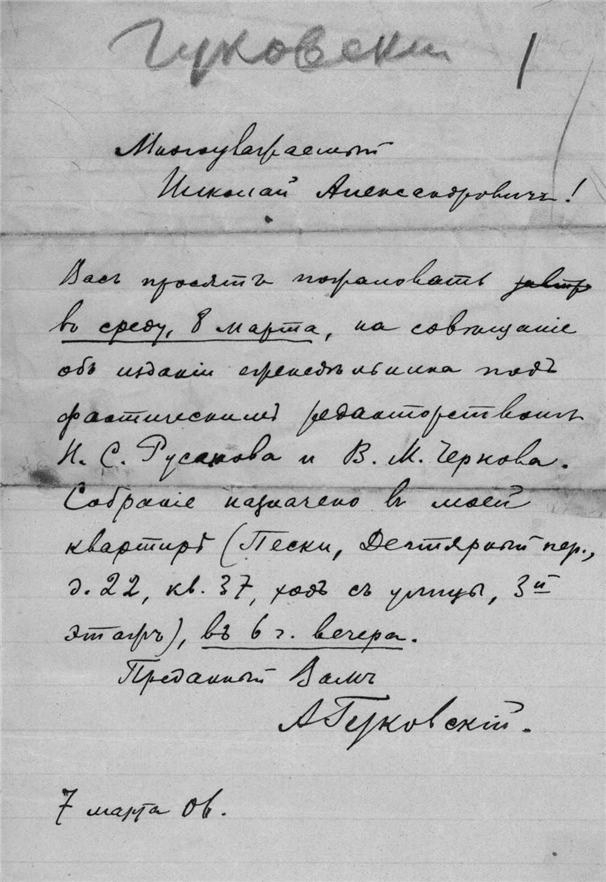 Гуковски
1
Многоуважаемый
Николай Александровичъ!
Васъ просятъ пожаловать завтр
въ среду, 8 марта, на совѣщаніе
объ изданіи еженедѣльника подъ
фактическимъ редакторствомъ
Н. С. Русанова и В. М. Чернова.
Собраніе назначено въ моей
квартирѣ (Пески, Дегтярный пер.,
д. 22, кв. 37, ходъ съ улицы, 3й
этажъ), въ 6 г. вечера.
Преданный Вамъ
АГуковскій.
7 марта 06.